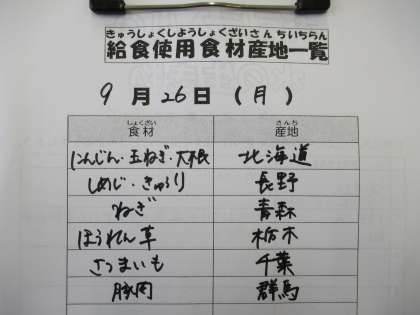 きゅうしょくしようしょくざいさんちいちらん
給食使用食材産地一覧
9月26日(月)
しょくざい さんち
食材 産地
にんじん・玉ねぎ・大根 北海道
しめじ・きゅうり 長野
ねぎ 青森
ほうれん草 栃木
さつまいも 千葉
豚肉 群馬